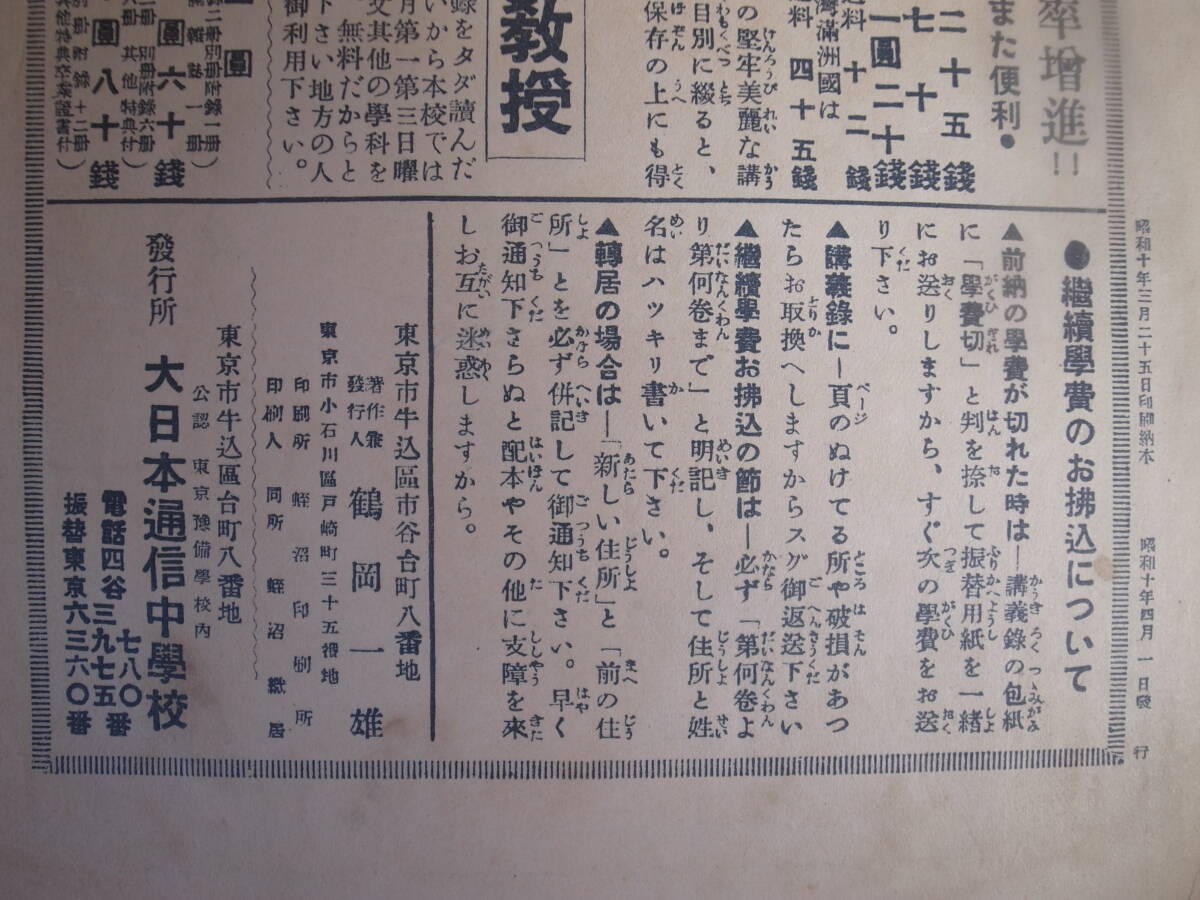 率增進!!
また便利●
二十五錢
七十錢
一圓二十錢
灣滿洲國は
送料 十二錢
料 四十五錢
の堅牢美麗な講
目別に綴ると、
保存の上にも得
教授
錄をタダ讀んだ
いから本校では
月第一第三日曜
文其他の學科を
無料だからと
下さい地方の人
御利用下さい。
圓
六十錢
八十錢
昭和十年三月二十五日印刷納本 昭和十年四月一日發行
●繼續學費のお拂込について
▲前納の學費が切れた時は―講義錄の包紙
に「學費切」と判を捺して振替用紙を一緒
にお送りしますから、すぐ次の學費をお送
り下さい。
▲講義錄に―頁のぬけてる所や破損があつ
たらお取換へしますからスグ御返送下さい
▲繼續學費お拂込の節は―必ず「第何卷よ
り第何卷まで」と明記し、そして住所と姓
名はハッキリ書いて下さい。
▲轉居の場合は―「新しい住所」と「前の住
所」とを必ず併記して御通知下さい。早く
御通知下さらぬと配本やその他に支障を來
しお互に迷惑しますから。
東京市牛込區市谷台町八番地
著作兼
發行人 鶴岡一雄
東京市小石川區戸崎町三十五番地
印刷所 蛭沼印刷所
印刷人 同所 蛭沼
東京市牛込區台町八番地
公認 東京豫備學校內
發行所 大日本通信中學校
電話四谷 三九七五番
七八〇
振替東京六三六〇番